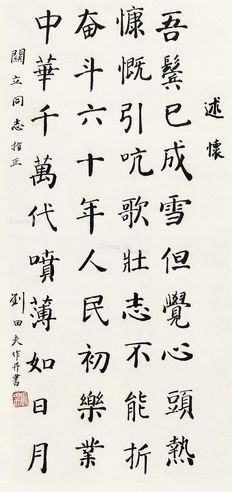 述懷
吾鬓已成雪但覺心頭熱
慷慨引吭歌壯志不能折
奋斗六十年人民初樂業
中華千萬代噴薄如日月
關立同志指正
劉田夫作并書